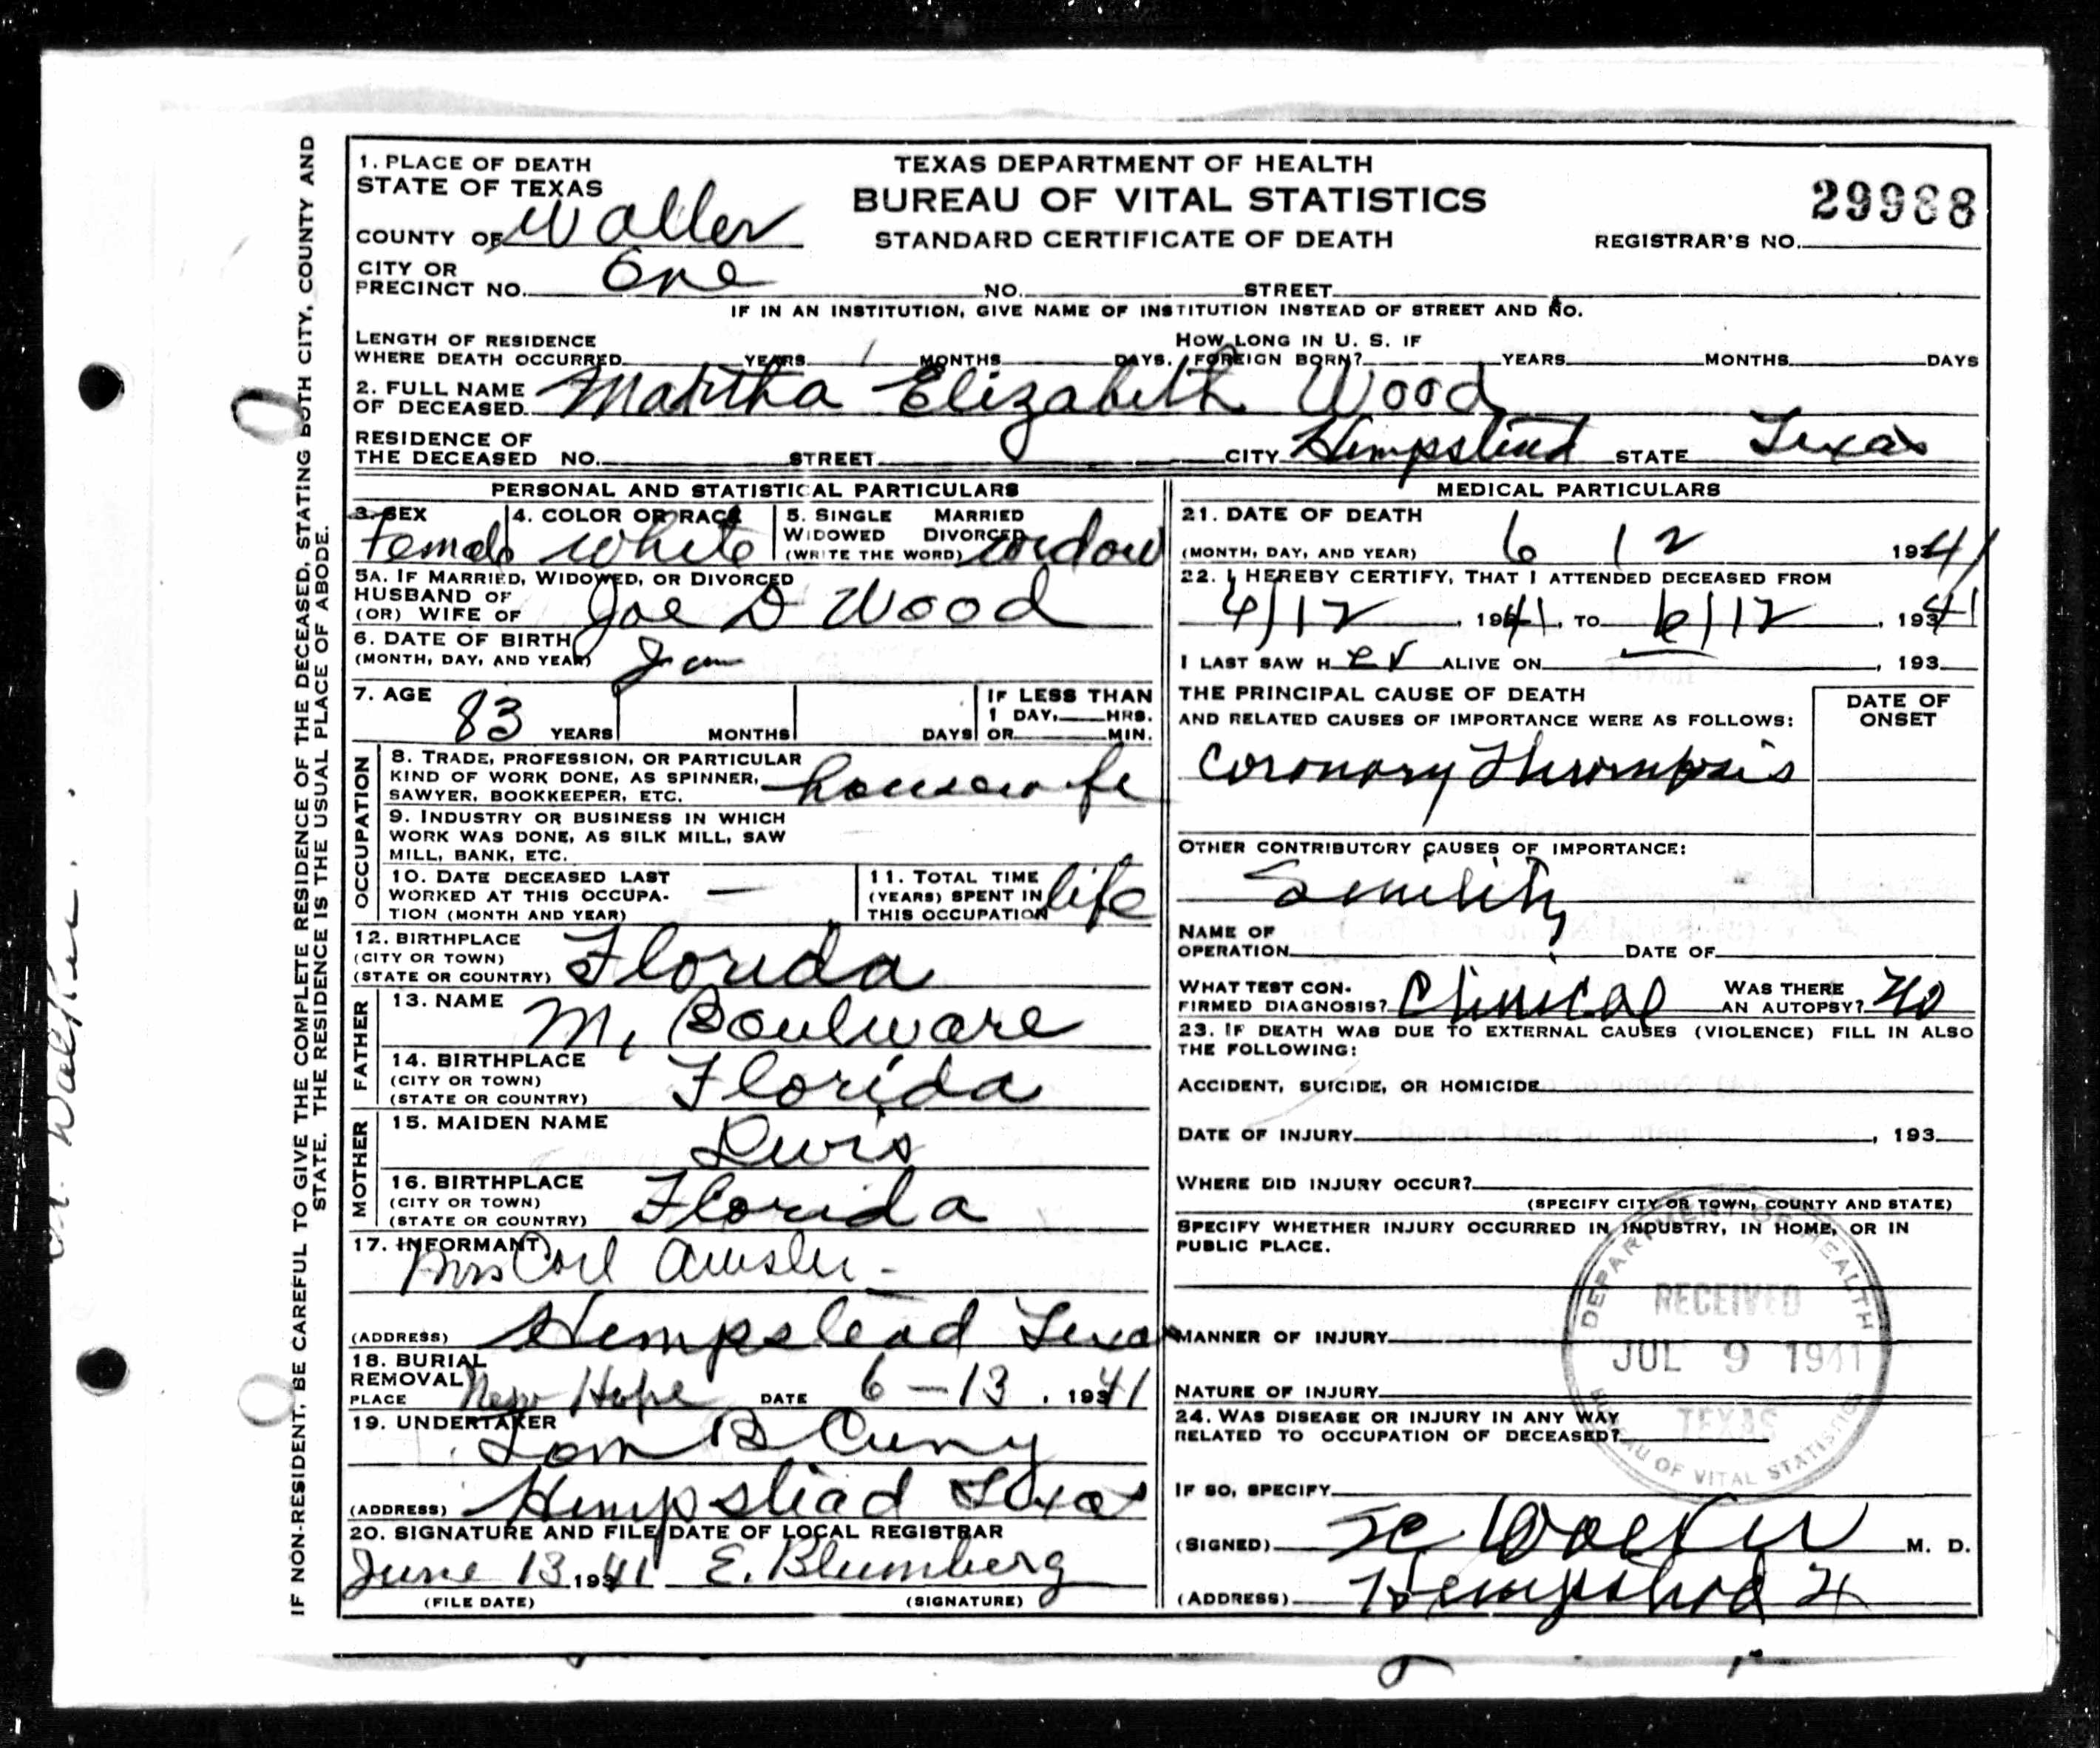 1. PLACE OF DEATH
STATE OF TEXAS
COUNTY OF Waller
CITY OR
PRECINCT NO. One NO. STREET
TEXAS DEPARTMENT OF HEALTH
BUREAU OF VITAL STATISTICS
STANDARD CERTIFICATE OF DEATH
29988
REGISTRAR'S NO.
IF IN AN INSTITUTION, GIVE NAME OF INSTITUTION INSTEAD OF STREET AND NO.
LENGTH OF RESIDENCE
WHERE DEATH OCCURRED YEARS MONTHS DAYS.
HOW LONG IN U. S. IF
FOREIGN BORN? YEARS MONTHS DAYS
2. FULL NAME
OF DECEASED Martha Elizabeth Wood
RESIDENCE OF
THE DECEASED NO. STREET CITY Hempstead STATE Texas
PERSONAL AND STATISTICAL PARTICULARS
3. SEX
Female
4. COLOR OR RACE
white
5. SINGLE MARRIED
WIDOWED DIVORCED
(WRITE THE WORD) widow
5A. IF MARRIED, WIDOWED, OR DIVORCED
HUSBAND OF
(OR) WIFE OF Joe D Wood
6. DATE OF BIRTH
(MONTH, DAY, AND YEAR) Jan
7. AGE 83 YEARS MONTHS DAYS
IF LESS THAN
1 DAY, HRS.
OR MIN.
OCCUPATION
8. TRADE, PROFESSION, OR PARTICULAR
KIND OF WORK DONE, AS SPINNER,
SAWYER, BOOKKEEPER, ETC. housewife
9. INDUSTRY OR BUSINESS IN WHICH
WORK WAS DONE, AS SILK MILL, SAW
MILL, BANK, ETC.
10. DATE DECEASED LAST
WORKED AT THIS OCCUPA-
TION (MONTH AND YEAR) —
11. TOTAL TIME
(YEARS) SPENT IN
THIS OCCUPATION life
12. BIRTHPLACE
(CITY OR TOWN)
(STATE OR COUNTRY) Florida
FATHER
13. NAME M. Boulware
14. BIRTHPLACE
(CITY OR TOWN)
(STATE OR COUNTRY) Florida
MOTHER
15. MAIDEN NAME Lewis
16. BIRTHPLACE
(CITY OR TOWN)
(STATE OR COUNTRY) Florida
17. INFORMANT
Mrs Carl Amsler
(ADDRESS) Hempstead Texas
18. BURIAL
REMOVAL
PLACE New Hope DATE 6-13, 1941
19. UNDERTAKER
Tom B Cuny
(ADDRESS) Hempstead Texas
20. SIGNATURE AND FILE DATE OF LOCAL REGISTRAR
June 13, 1941 E. Blumberg
(FILE DATE) (SIGNATURE)
MEDICAL PARTICULARS
21. DATE OF DEATH
(MONTH, DAY, AND YEAR) 6 12 1941
22. I HEREBY CERTIFY, THAT I ATTENDED DECEASED FROM
4/12, 1941, TO 6/12, 1941
I LAST SAW H er ALIVE ON , 193
THE PRINCIPAL CAUSE OF DEATH
AND RELATED CAUSES OF IMPORTANCE WERE AS FOLLOWS:
DATE OF
ONSET
Coronary Thrombosis
OTHER CONTRIBUTORY CAUSES OF IMPORTANCE:
Senility
NAME OF
OPERATION DATE OF
WHAT TEST CON-
FIRMED DIAGNOSIS? Clinical
WAS THERE
AN AUTOPSY? No
23. IF DEATH WAS DUE TO EXTERNAL CAUSES (VIOLENCE) FILL IN ALSO
THE FOLLOWING:
ACCIDENT, SUICIDE, OR HOMICIDE
DATE OF INJURY , 193
WHERE DID INJURY OCCUR?
(SPECIFY CITY OR TOWN, COUNTY AND STATE)
SPECIFY WHETHER INJURY OCCURRED IN INDUSTRY, IN HOME, OR IN
PUBLIC PLACE.
MANNER OF INJURY
NATURE OF INJURY
24. WAS DISEASE OR INJURY IN ANY WAY
RELATED TO OCCUPATION OF DECEASED?
IF SO, SPECIFY
(SIGNED) Walker M. D.
(ADDRESS) Hempstead
DEPARTMENT OF HEALTH
RECEIVED
JUL 9 1941
TEXAS
BUREAU OF VITAL STATISTICS
IF NON-RESIDENT, BE CAREFUL TO GIVE THE COMPLETE RESIDENCE OF THE DECEASED, STATING BOTH CITY, COUNTY AND
STATE. THE RESIDENCE IS THE USUAL PLACE OF ABODE.
Walker.